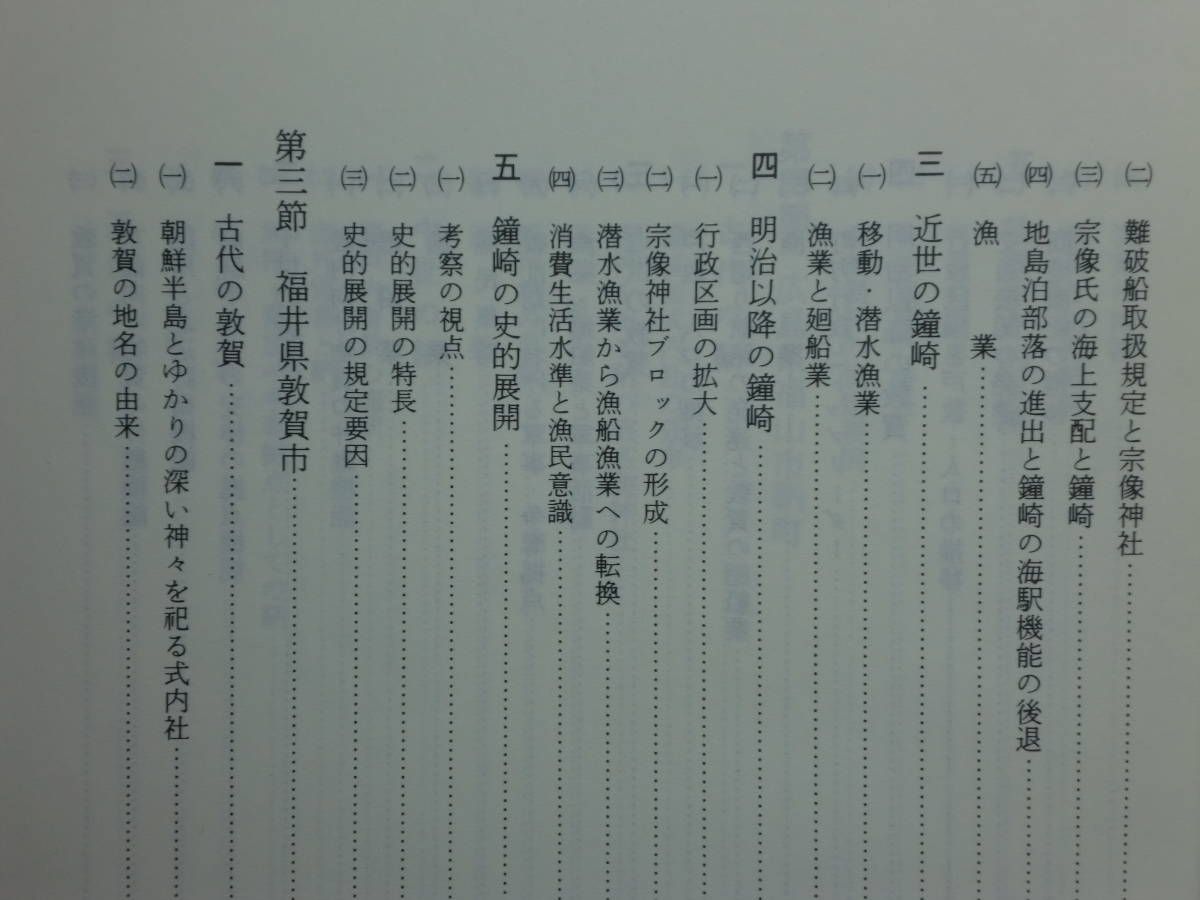 ㈡ 難破船取扱規定と宗像神社……………………
㈢ 宗像氏の海上支配と鐘崎……………………
㈣ 地島泊部落の進出と鐘崎の海駅機能の後退……………
㈤ 漁　業……………………………
三 近世の鐘崎……………………………
㈠ 移動・潜水漁業……………………………
㈡ 漁業と廻船業……………………………
四 明治以降の鐘崎……………………………
㈠ 行政区画の拡大……………………………
㈡ 宗像神社ブロックの形成……………………
㈢ 潜水漁業から漁船漁業への転換……………………
㈣ 消費生活水準と漁民意識……………………
五 鐘崎の史的展開……………………………
㈠ 考察の視点……………………………
㈡ 史的展開の特長……………………………
㈢ 史的展開の規定要因……………………………
第三節　福井県敦賀市……………………………
一 古代の敦賀……………………………
㈠ 朝鮮半島とゆかりの深い神々を祀る式内社……………
㈡ 敦賀の地名の由来……………………………